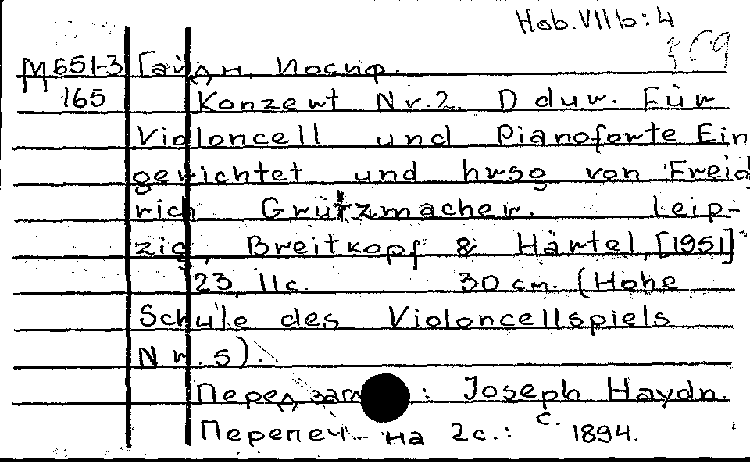 Hob.VIIb:4
М551-3 Гайдн, Иосиф.
165 Konzert Nr.2. D dur. Für
Violoncell und Pianoforte Ein
gerichtet und hrsg von Freid
rich Grützmacher. Leip-
zig, Breitkopf & Härtel, [1951]
23, 11c. 30 cm. (Hohe
Schule des Violoncellspiels
Nr. 5).
Перед : Joseph Haydn.
Перепеч. на 2с.: с. 1894.